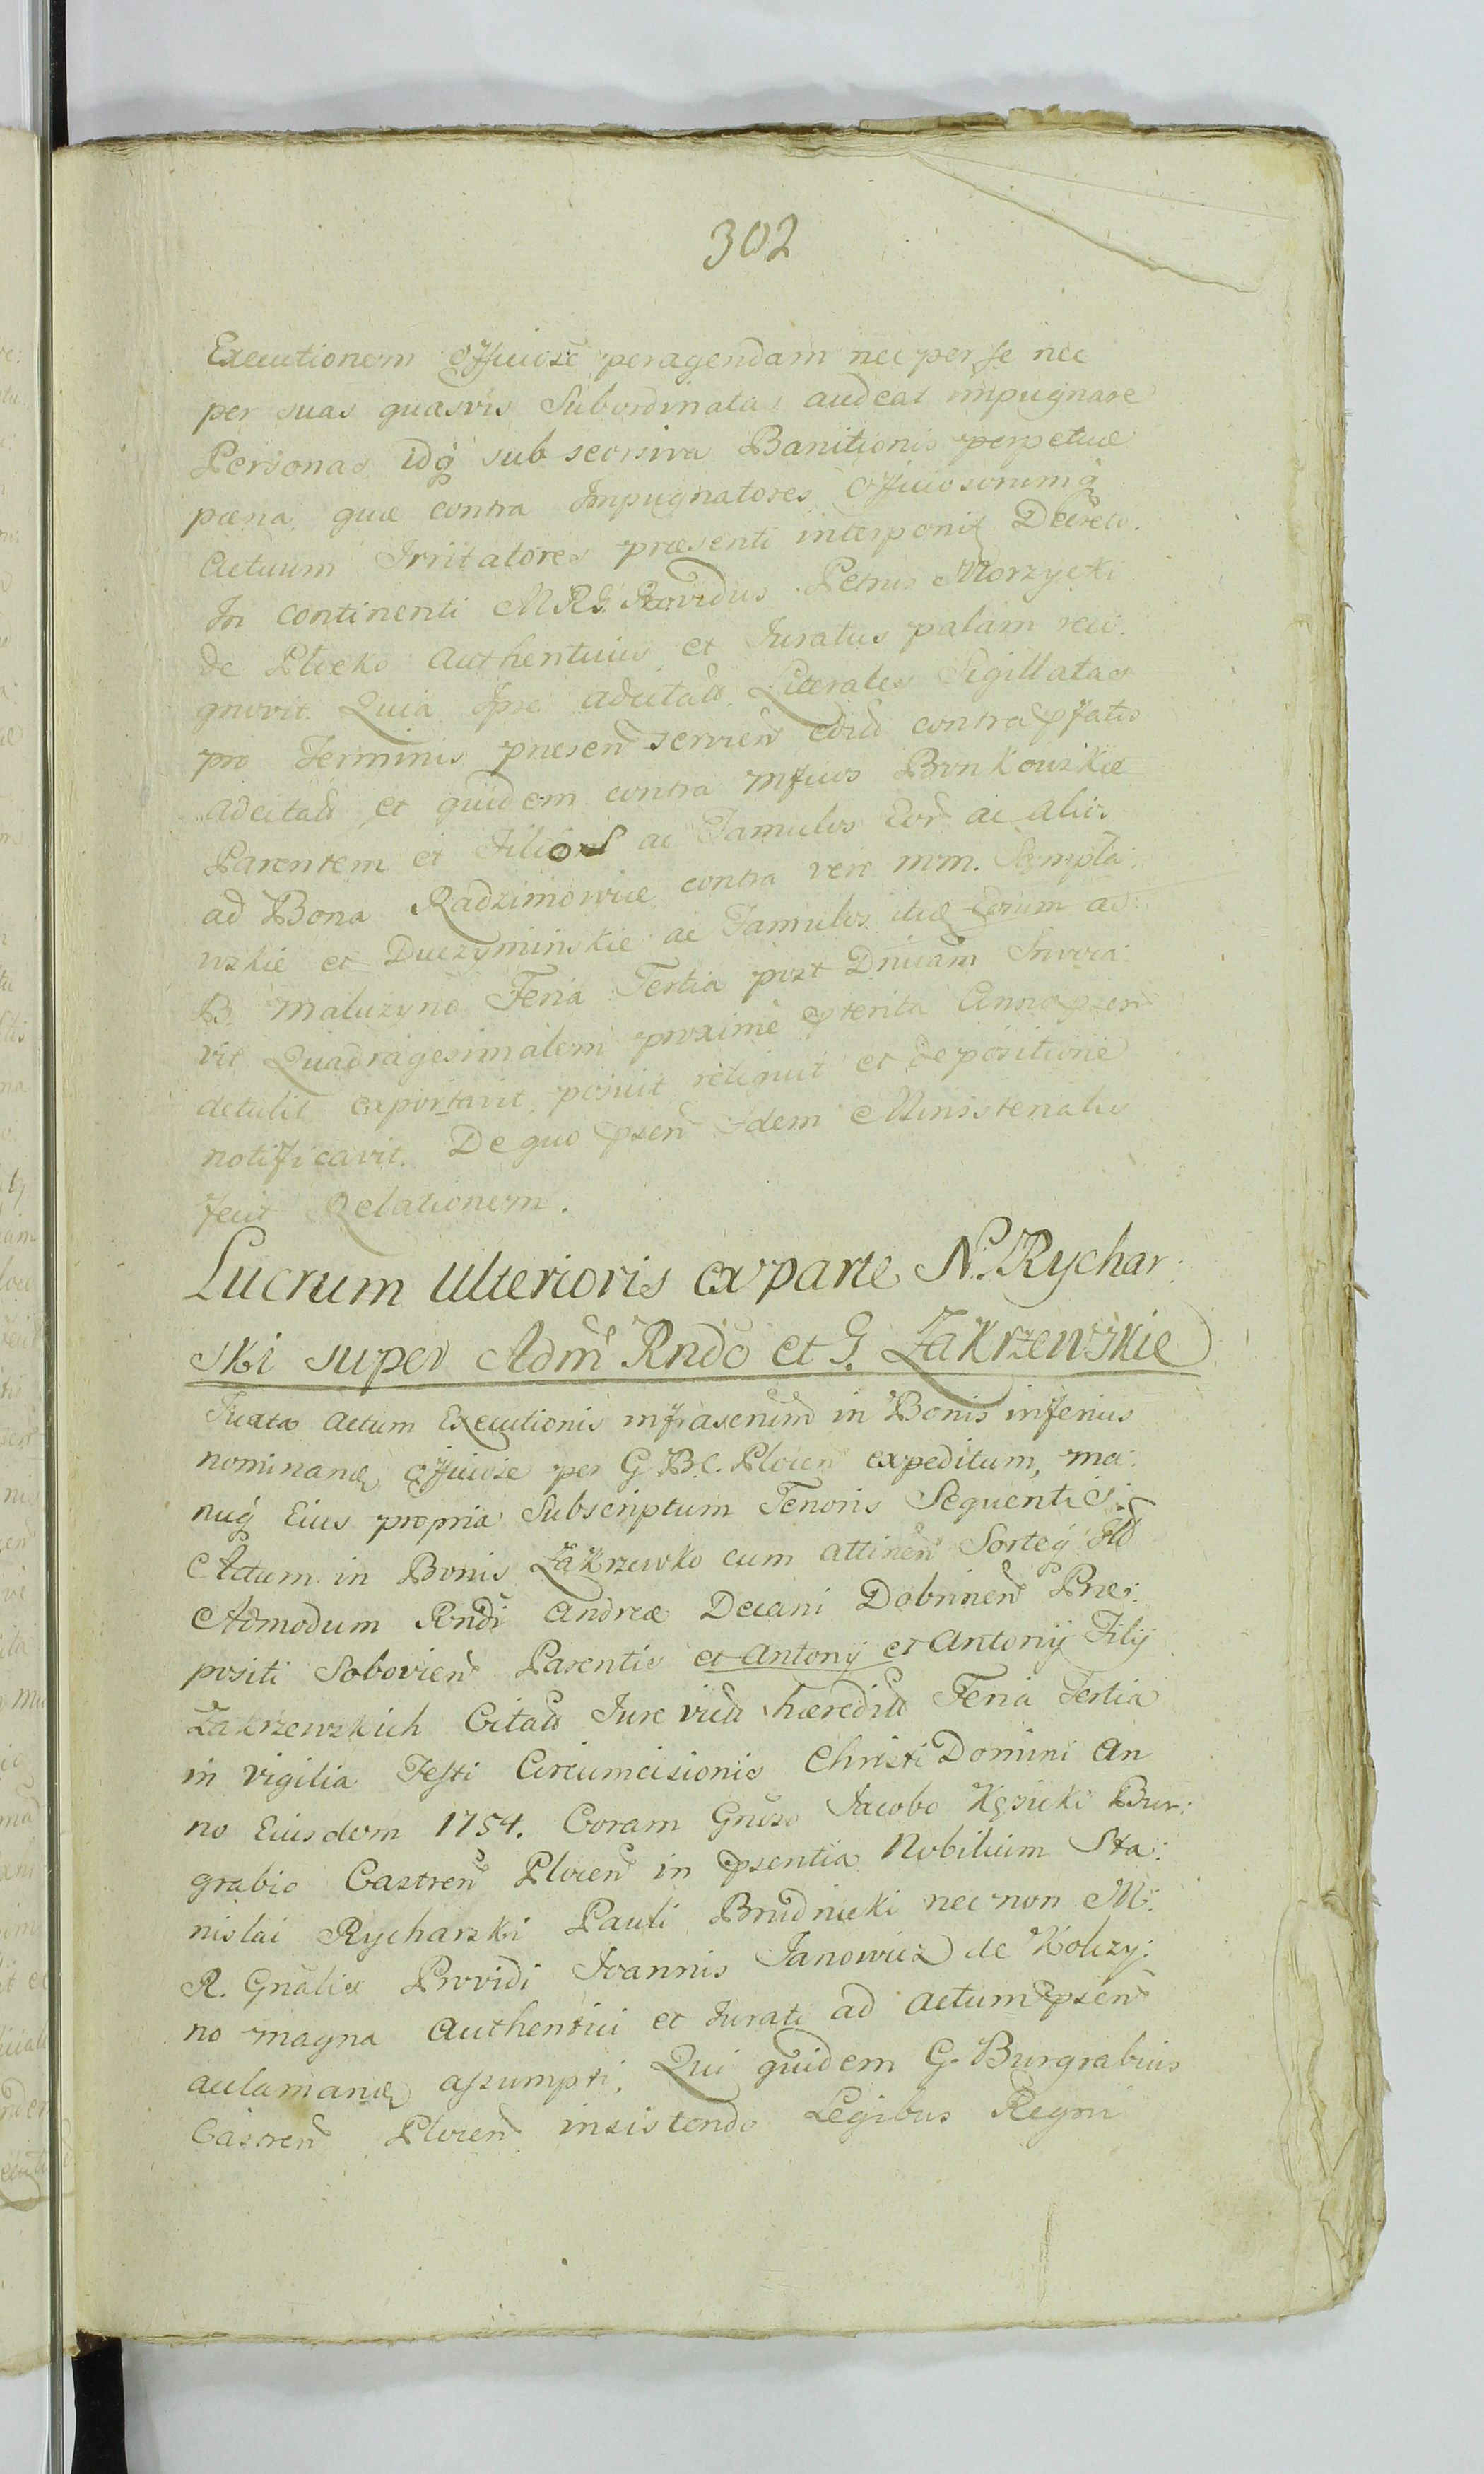 302
Executionem officiose peragendam nec per se nec
per suas quasvis Subordinatas audeat impugnare
Personas, idq sub seorsiva Banitionis perpetuæ
pæna, quæ contra Impugnatores officiosorumq
Actuum Irritatores præsenti interponit Decreto.
In continenti M.R.G. Providus Petrus Morzycki
de Plocko Authenticus et Iuratus palam reco:
gnovit. Quia Ipse adcitaõ Literales Sigillatas
pro Terminis præsen servien edit contra pfatos
adcitatt et quidem contra Mficos Bonkowskie
Parentem et Filios ac Famulos Eor ac alios
ad Bona Radzimowice contra vero mm. Sampła:
wskie et Duczyminskie ac Famulos itid Eorum ad
B. Maluzyno Feria Tertia post Dnicam Invoca:
vit Quadragesimalem proxime pterita Anno psen
detulit exportavit, posuit reliquit et depositione
notificavit. De quo psen Idem Ministerialis
fecit Relationem.
Lucrum Ulterioris ex parte N. Rychar:
ski super Adm Rndo et G. Zakrzewskie
Iuxta Actum Executionis infrascriptum in Bonis inferius
nominand officiose per G.B.C. Plocen expeditum, ma:
nuq Eius propria Subscriptum Tenoris Sequentis:
Actum in Bonis Zakrzewko cum attinen Sorteq
Admodum Rndi Andreæ Decani Dobrinen Præ:
positi Sobovien Parentis et Antonij et Antonij Filij
Zakrzewskich Citatt Iure victt hæreditt Feria Tertia
in Vigilia Festi Circumcisionis Christi Domini An
no Eiusdem 1754. Coram Gnoso Iacobo Kęsicki Bur:
grabio Castren Plocen in psentia Nobilium Sta:
nislai Rycharski Pauli Brudnicki nec non M:
R. Gnalis Providi Ioannis Ianowicz de Kolczy:
no magna Authentici et Iurati ad actum psen
aclamand assumpti. Qui quidem G. Burgrabius
Castren Plocen insistendo Legibus Regni